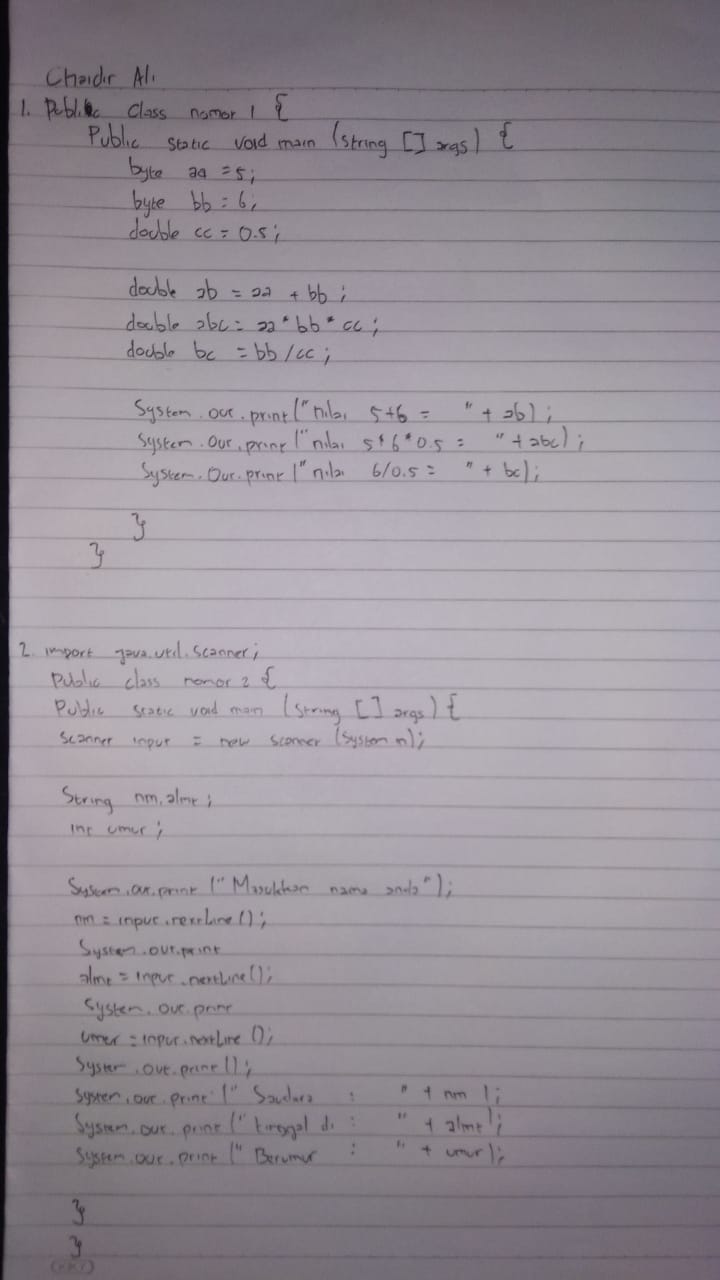 Chaidir Ali
1. Public class nomor 1 {
Public static void main (string [] args) {
byte aa = 5;
byte bb = 6;
double cc = 0.5;
double ab = aa + bb;
double abc = aa * bb * cc;
double bc = bb / cc;
System.out.print ("nilai 5+6 = " + ab);
System.out.print ("nilai 5*6*0.5 = " + abc);
System.out.print ("nilai 6/0.5 = " + bc);
}
}
2. import java.util.scanner;
Public class nomor 2 {
Public static void main (string [] args) {
scanner input = new scanner (system in);
String nm, almt;
int umur;
System.out.print ("Masukkan nama anda");
nm = input.nextLine ();
System.out.print
almt = input.nextLine ();
System.out.print
umur = input.nextLine ();
System.out.print ();
System.out.print (" Saudara : " + nm );
System.out.print (" tinggal di : " + almt );
System.out.print (" Berumur : " + umur );
}
}